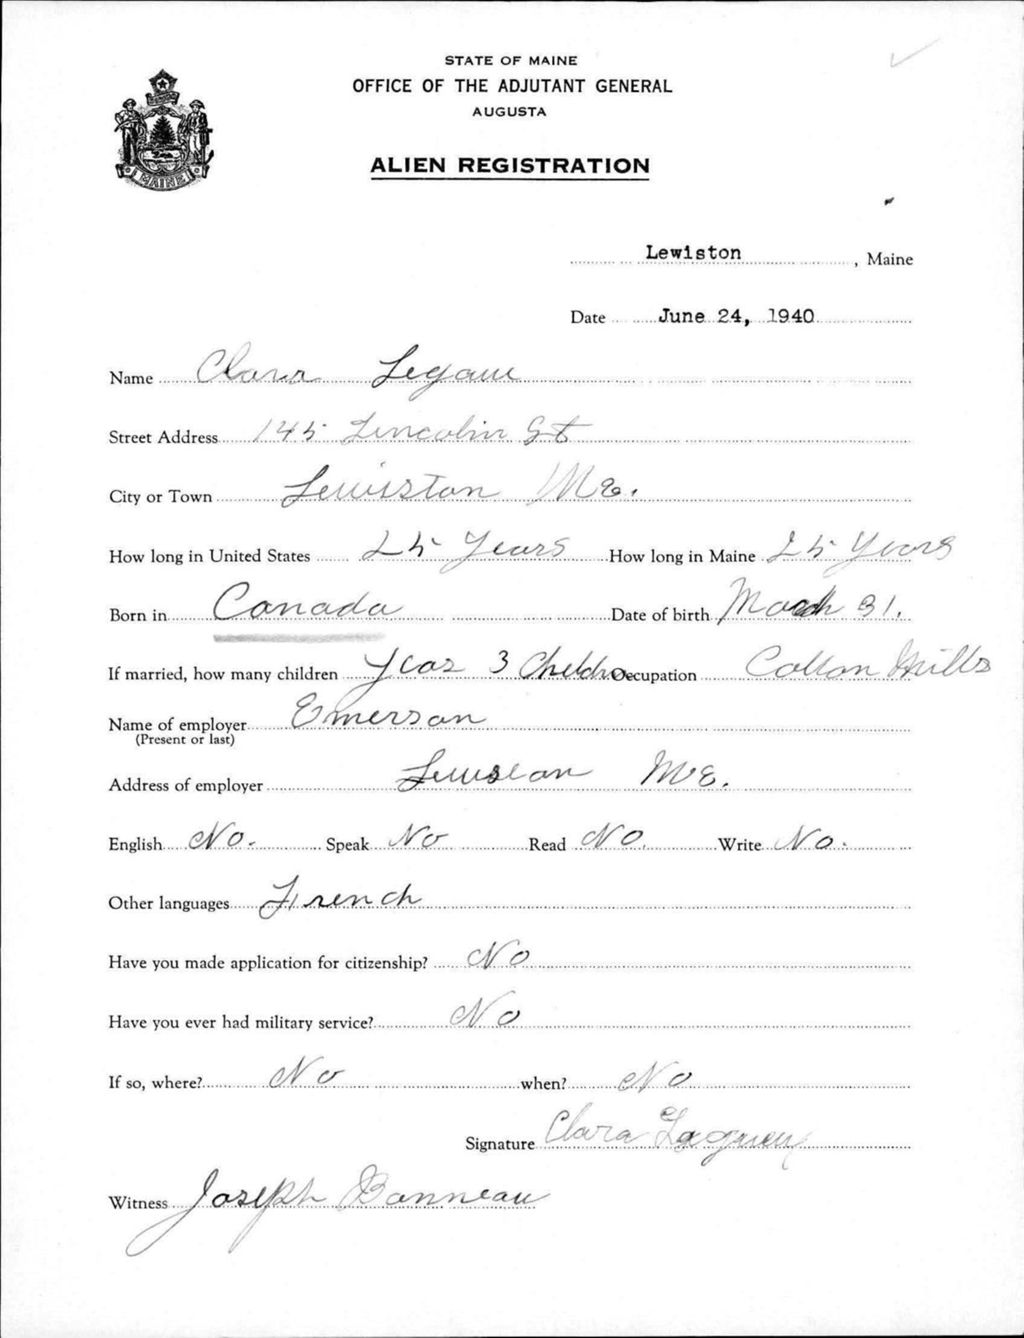 STATE OF MAINE
OFFICE OF THE ADJUTANT GENERAL
AUGUSTA
MAINE
ALIEN REGISTRATION
Lewiston, Maine
Date June 24, 1940
Name Clara
Street Address 145 Lincolin St
City or Town Lewistan Me.
How long in United States 25 Years How long in Maine 25 Years
Born in Canada Date of birth March 31.
If married, how many children 3 Occupation Cotton Mills
Name of employer Emerson
(Present or last)
Address of employer Me.
English No. Speak No Read No. Write No.
Other languages French
Have you made application for citizenship? No
Have you ever had military service? No
If so, where? No when? No
Signature Clara
Witness Joseph Bonneau